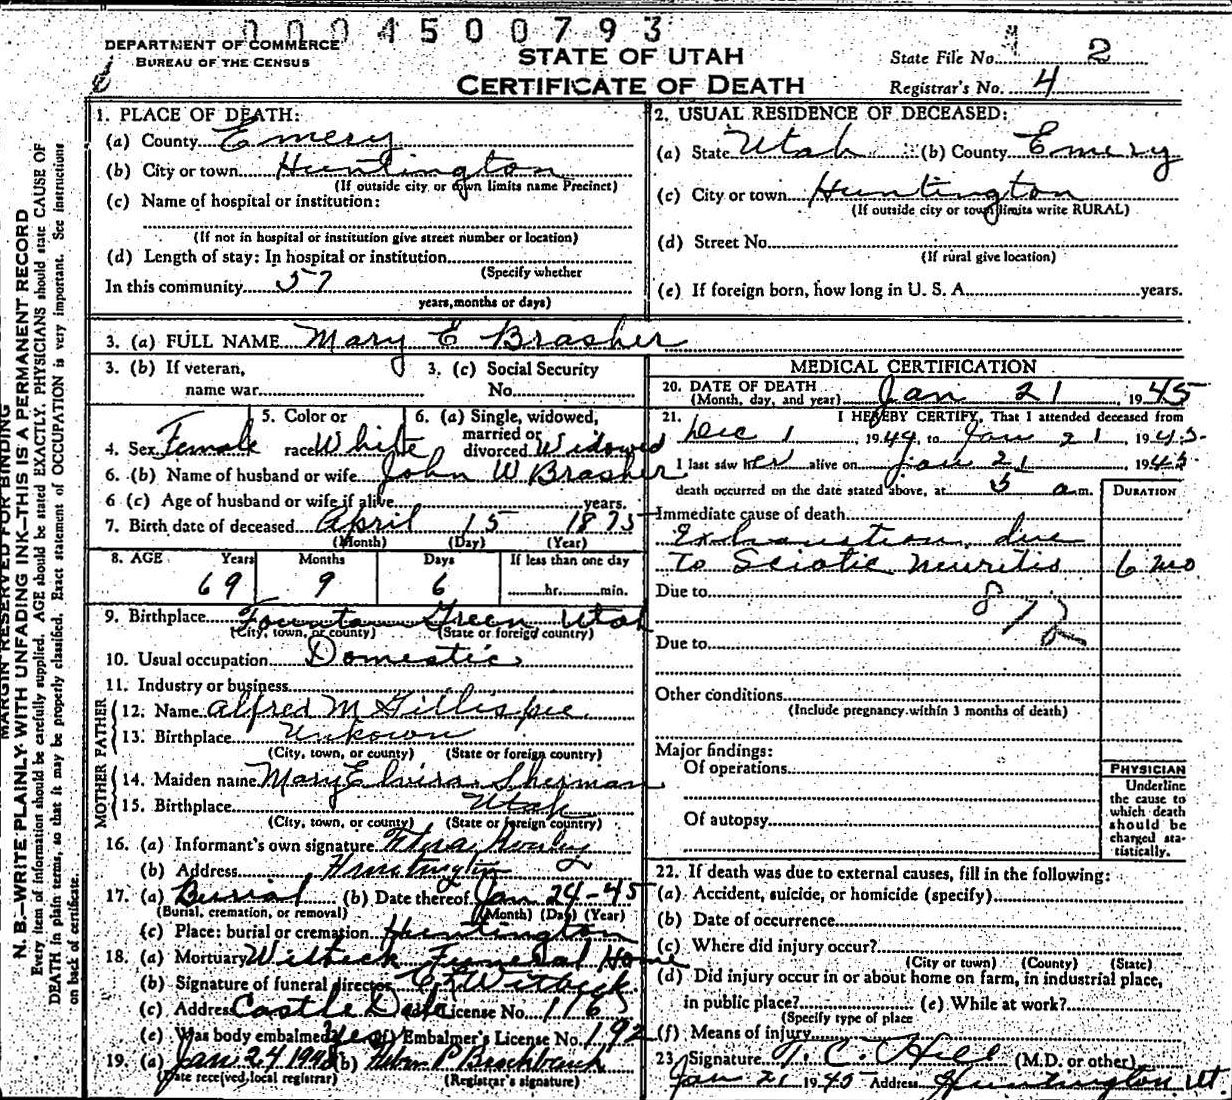 0004500793
DEPARTMENT OF COMMERCE
BUREAU OF THE CENSUS
STATE OF UTAH
CERTIFICATE OF DEATH
State File No. 2
Registrar's No. 4
MARGIN RESERVED FOR BINDING
N. B.—WRITE PLAINLY WITH UNFADING INK—THIS IS A PERMANENT RECORD
Every item of information should be carefully supplied. AGE should be stated EXACTLY. PHYSICIANS should state CAUSE OF
DEATH in plain terms, so that it may be properly classified. Exact statement of OCCUPATION is very important. See instructions
on back of certificate.
1. PLACE OF DEATH:
(a) County Emery
(b) City or town Huntington
(If outside city or town limits name Precinct)
(c) Name of hospital or institution:
(If not in hospital or institution give street number or location)
(d) Length of stay: In hospital or institution
(Specify whether
In this community 57
years, months or days)
2. USUAL RESIDENCE OF DECEASED:
(a) State Utah (b) County Emery
(c) City or town Huntington
(If outside city or town limits write RURAL)
(d) Street No.
(If rural give location)
(e) If foreign born, how long in U. S. A. years.
3. (a) FULL NAME Mary E Brasher
3. (b) If veteran,
name war
3. (c) Social Security
No.
4. Sex Female
5. Color or
race White
6. (a) Single, widowed,
married or
divorced Widowed
6. (b) Name of husband or wife John W Brasher
6 (c) Age of husband or wife if alive years.
7. Birth date of deceased April 15 1875
(Month) (Day) (Year)
8. AGE Years Months Days If less than one day
69 9 6 hr. min.
9. Birthplace Fountain Green Utah
(City, town, or county) (State or foreign country)
10. Usual occupation Domestic
11. Industry or business
FATHER
12. Name Alfred M Gillispie
13. Birthplace Unkown
(City, town, or county) (State or foreign country)
MOTHER
14. Maiden name Mary Elvira Sherman
15. Birthplace Utah
(City, town, or county) (State or foreign country)
16. (a) Informant's own signature
(b) Address Huntington
17. (a) Burial (b) Date thereof Jan 24-45
(Burial, cremation, or removal) (Month) (Day) (Year)
(c) Place: burial or cremation Huntington
18. (a) Mortuary Witbeck Funeral Home
(b) Signature of funeral director Witbeck
(c) Address Castle Dale License No. 1165
(e) Was body embalmed? Yes (f) Embalmer's License No. 192
19. (a) Jan 24 (b)
(Date received, local registrar) (Registrar's signature)
MEDICAL CERTIFICATION
20. DATE OF DEATH
(Month, day, and year) Jan 21, 1945
21. I HEREBY CERTIFY, That I attended deceased from
Dec 1, 1944, to Jan 21, 1945.
I last saw her alive on Jan 21 1945
death occurred on the date stated above, at 5 a.m.
DURATION
Immediate cause of death
Exhaustion due
To Sciatic Neuritis 6 mo
Due to
Due to
Other conditions
(Include pregnancy within 3 months of death)
Major findings:
Of operations
Of autopsy
PHYSICIAN
Underline
the cause to
which death
should be
charged sta-
tistically.
22. If death was due to external causes, fill in the following:
(a) Accident, suicide, or homicide (specify)
(b) Date of occurrence
(c) Where did injury occur?
(City or town) (County) (State)
(d) Did injury occur in or about home on farm, in industrial place,
in public place? (e) While at work?
(Specify type of place
(f) Means of injury
23. Signature T. C. Hill (M.D. or other)
Jan 21 1945 Address Huntington Ut.